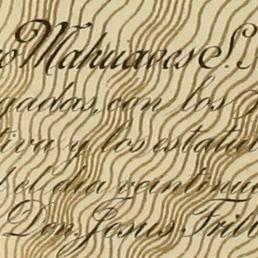 Mahuaves S.
gadas, con los
tiva y los estatut
el dia veintinue
Don Jesus Trill